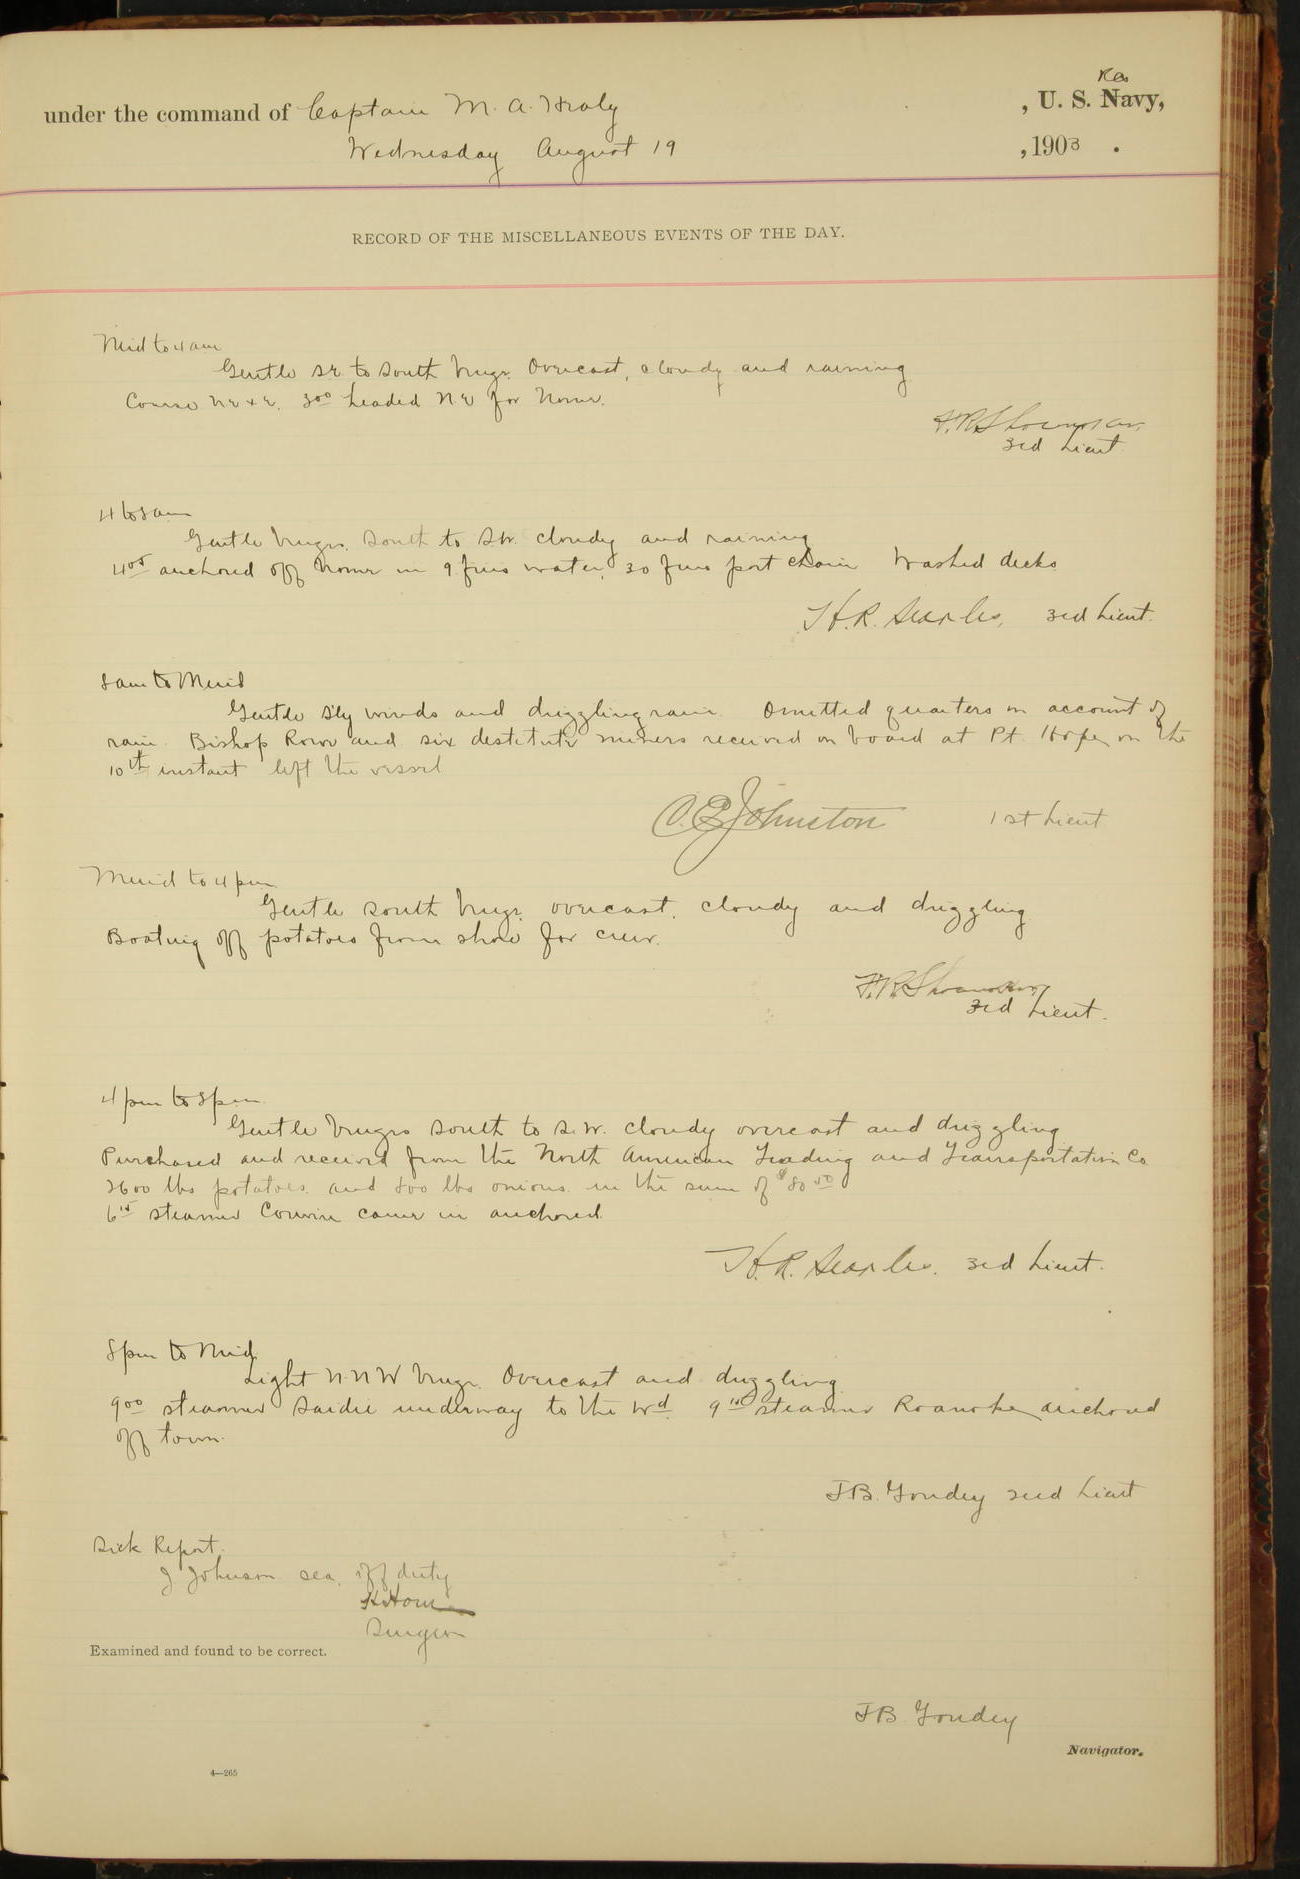 under the command of Captain M. A. Healy , U. S. Navy, RCS
Wednesday August 19 , 1903 .
RECORD OF THE MISCELLANEOUS EVENTS OF THE DAY.
Mid to 4 am
Gentle SE to South bregs. Overcast, cloudy and raining
Course NE x E. 3 00 headed NE for Nome.
3rd Lieut.
4 to 8 am
Gentle brezes. South to SW. cloudy and raining
4 05 anchored off Nome in 9 fms water, 30 fms port chain Washed decks
H. R. Searles, 3rd Lieut.
8 am to Merid
Gentle S'ly winds and drizzling rain. Omitted quarters on account of
rain. Bishop Rowe and six destitute miners received on board at Pt. Hope, on the
10th instant left the vessel
C. E. Johnston 1st Lieut
Merid to 4 pm
Gentle South brezs. overcast, cloudy and drizzling
Boating off potatoes from shore for crew.
3rd Lieut.
4 pm to 8 pm
Gentle brezes South to S.W. cloudy overcast and drizzling
Purchased and received from the North American Trading and Transportation Co
2600 lbs potatoes and 800 lbs onions in the sum of $80 00
steamer Corwin came in anchored.
H. R. Searles. 3rd Lieut.
8 pm to Mid
Light N.N.W brezs. Overcast and drizzling
9 00 steamer Saidie underway to the Wd. steamer Roanoke anchored
off town.
J B. Goudey 2nd Lieut
Sick Report.
J Johnson sea. off duty
Surgeon
Examined and found to be correct.
J B Goudey
Navigator.
4—265